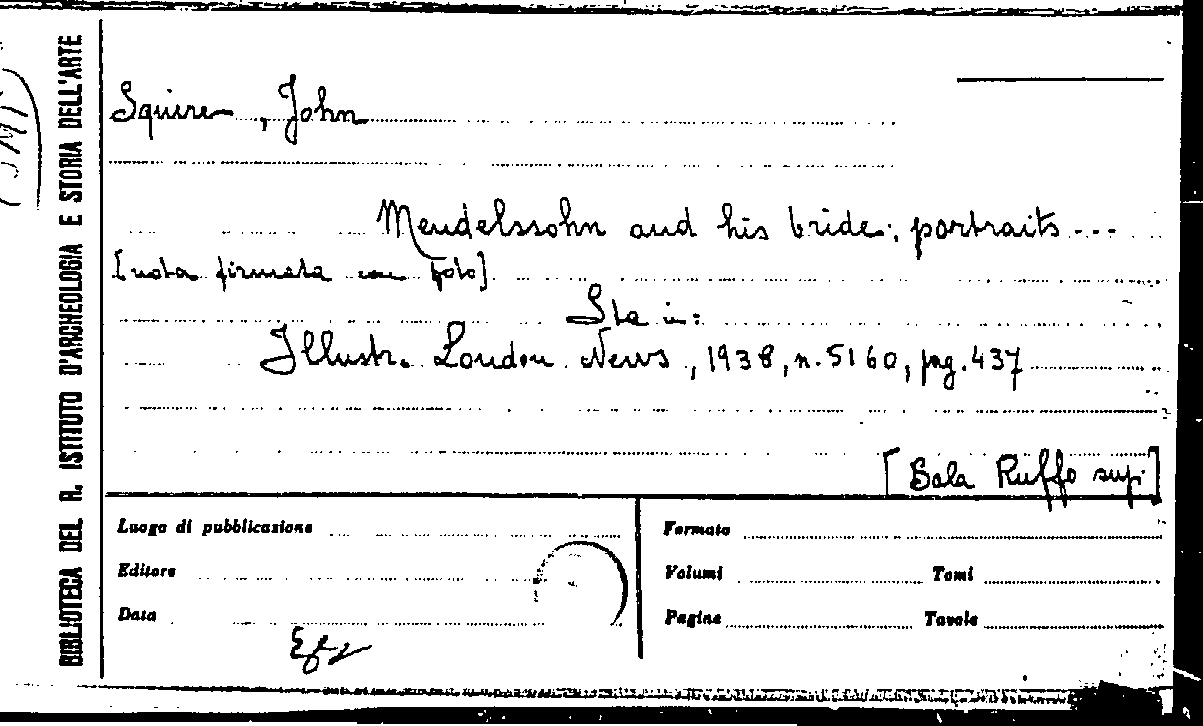 BIBLIOTECA DEL R. ISTITUTO D'ARCHEOLOGIA E STORIA DELL'ARTE
Squire, John
Mendelssohn and his bride; portraits ---
[nota firmata con foto]
Sta in:
Illustr. London News, 1938, n. 5160, pag. 437
[Sala Ruffo sup.]
Luogo di pubblicazione
Editore
Data
Formato
Volumi Tomi
Pagine Tavole